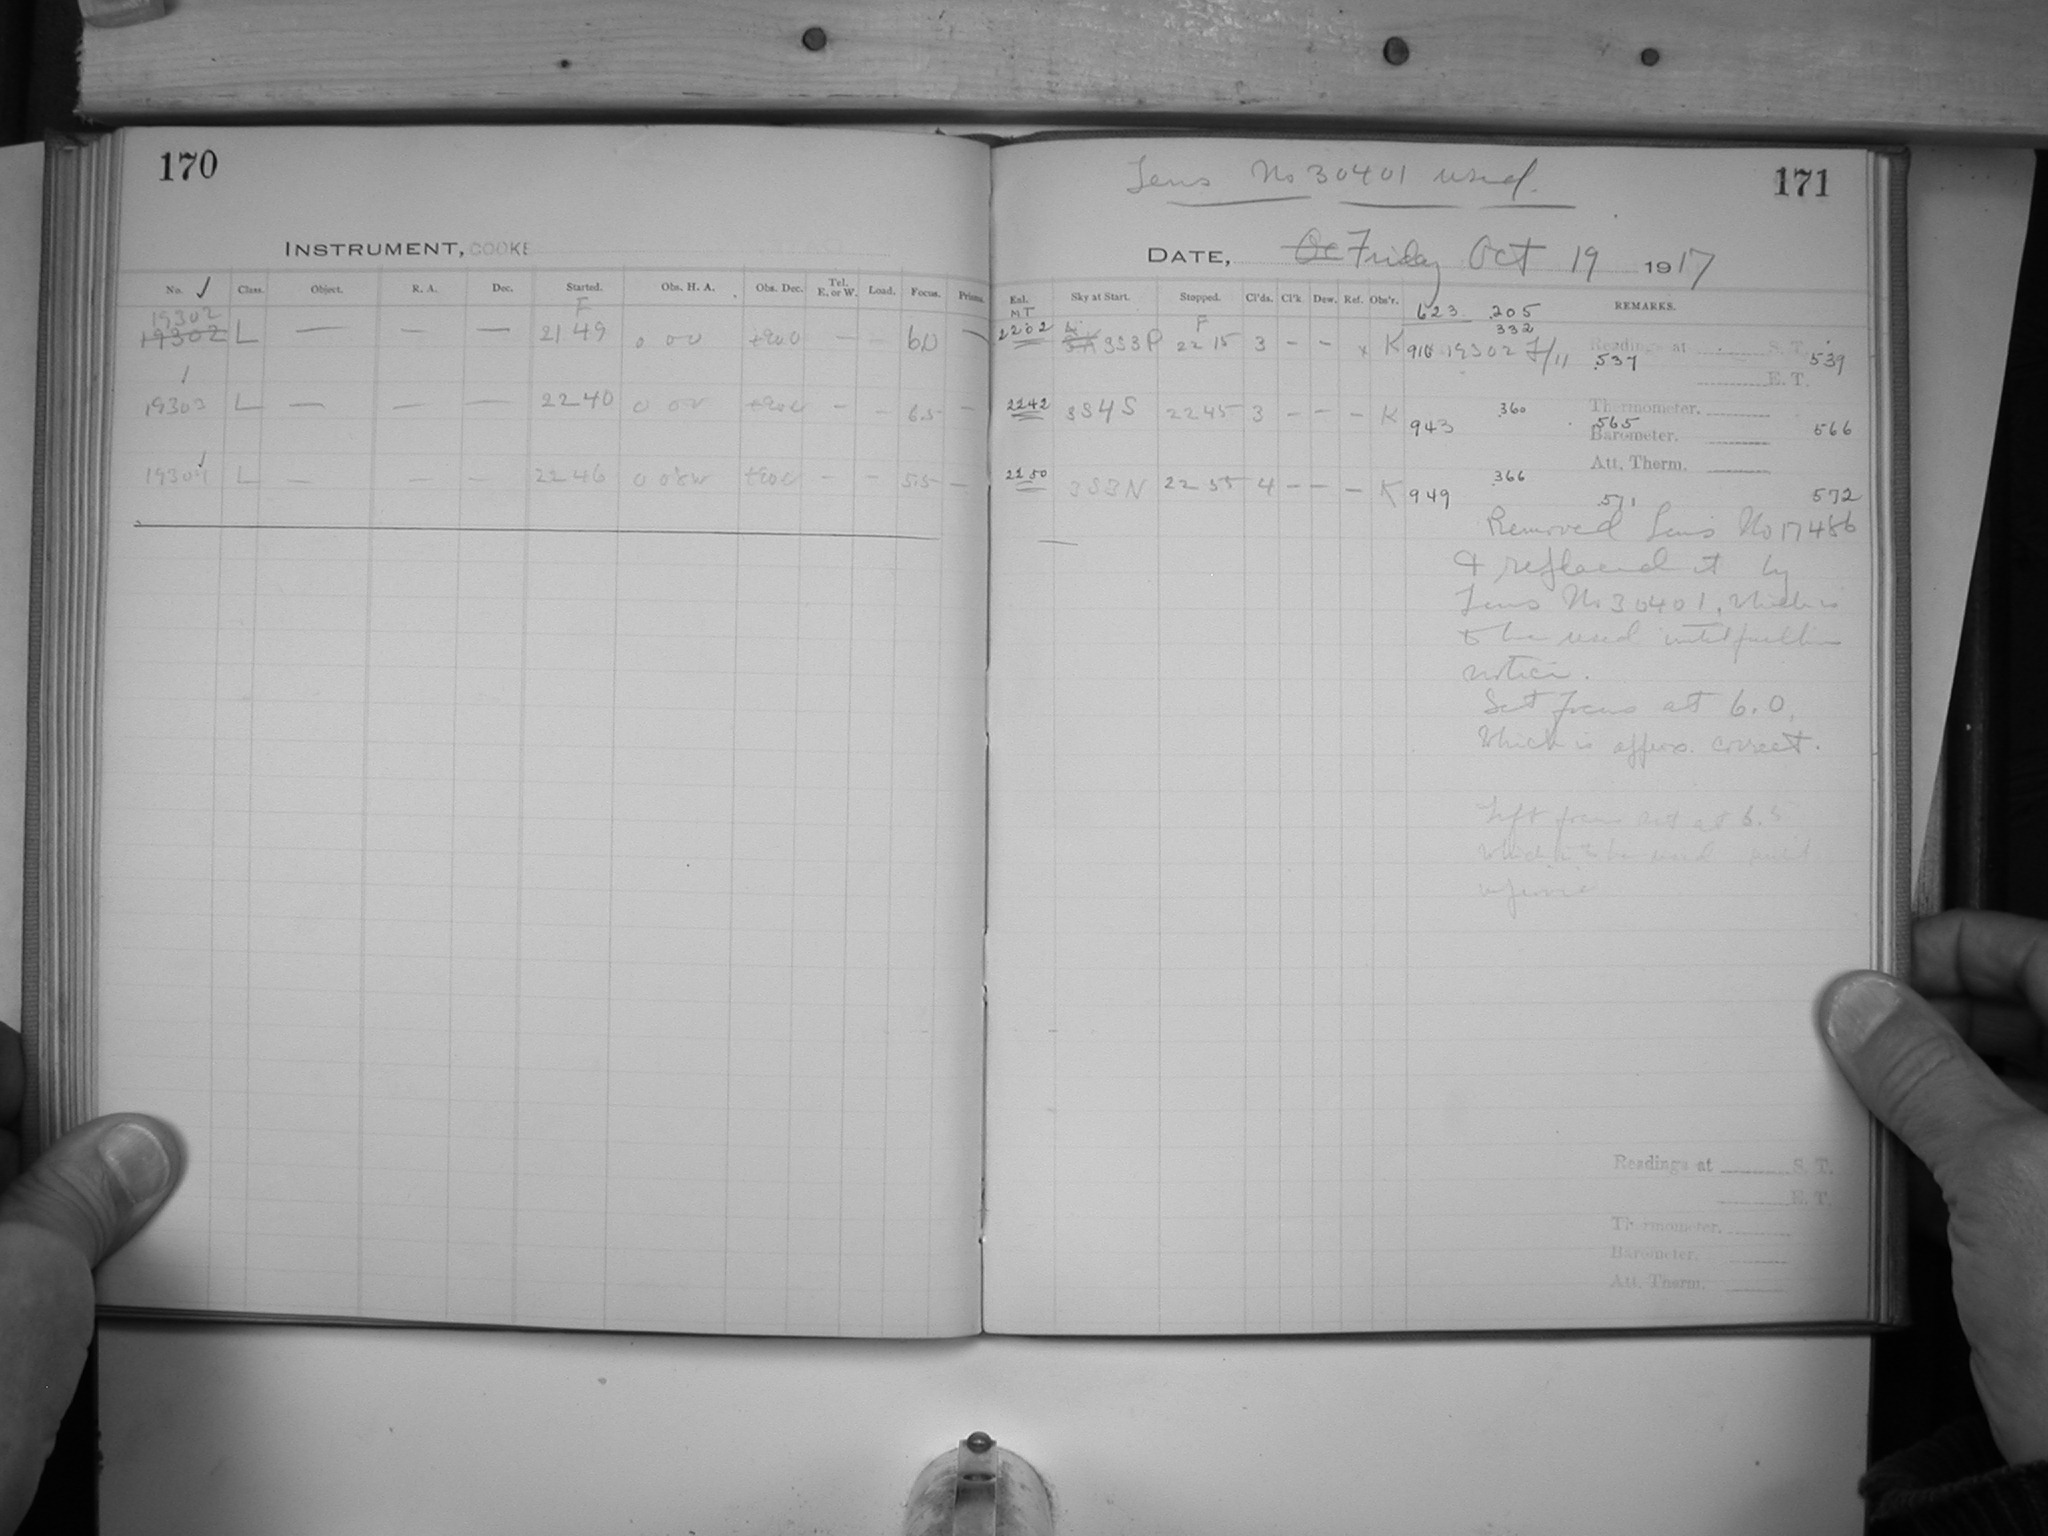 170
INSTRUMENT, COOKE
No. ✓ Class. Object. R. A. Dec. Started. Obs. H. A. Obs. Dec. Tel. E. or W. Load. Focus. Prisms.
F
19302
19302 L — — — 21 49 0 00 +90 0 — — 6.0 —
19303 L — — — 22 40 0 00 +90 0 — — 6.5 —
19304 L — — — 22 46 0 08W +90 0 — — 5.5 —
171
Lens No 30401 used.
DATE, Oc Friday Oct 19 1917
Exl. MT Sky at Start. Stopped. Cl'ds. Cl'k. Dew. Ref. Obs'r. REMARKS.
623 .205
F .332
2202 3S3P 22 15 3 — — x K 916 19302 F/11 .537 .539
Readings at S. T.
E. T.
.360
2242 3S4S 22 45 3 — — — K 943 .565 566
Thermometer.
Barometer.
Att. Therm.
.366
2250 3S3N 22 55 4 — — — K 949 .571 572
Removed Lens No 17486
& replaced it by
Lens No 30401, which is
to be used until further
notice.
Set focus at 6.0,
which is approx. correct.
Left focus set at 6.5
which is to be used until
Readings at S. T.
E. T.
Thermometer.
Barometer.
Att. Therm.